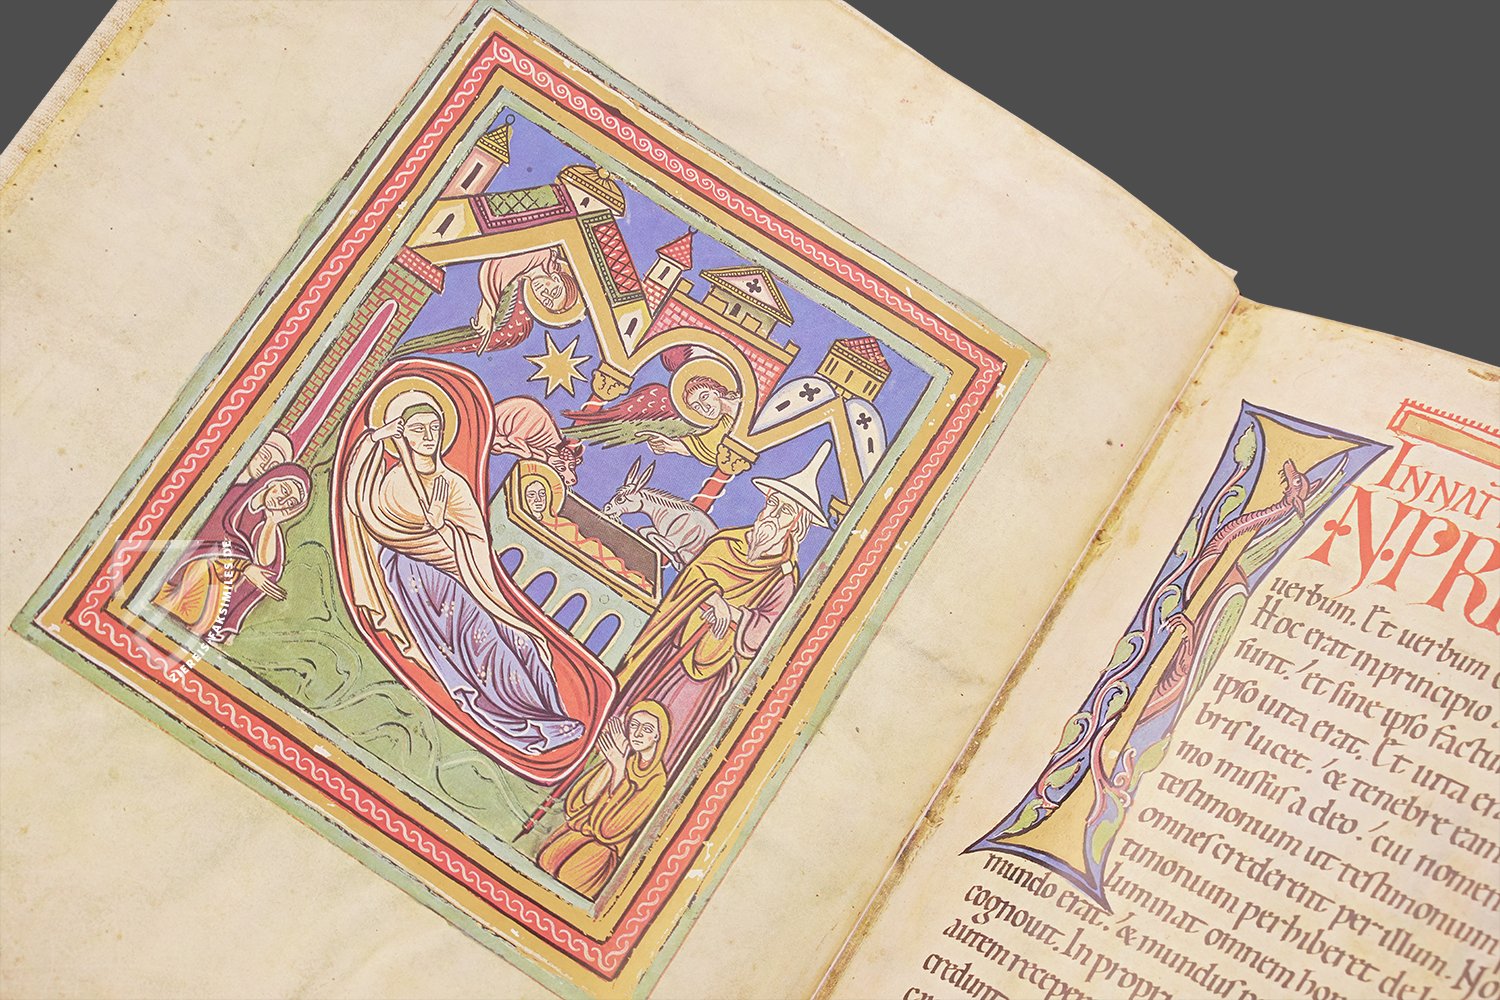 IN NAT
N.PRI
uerbum. Et uerbum
Hoc erat in principio
sunt. et sine ipso factu
ipso uita erat. Et uita era
bris lucet. & tenebre eam
mo missus a deo. cui nomen
testimonium ut testimonium
omnes crederent per illum.
timonium perhiberet de l
luminat omnem ho
mundo erat. & mundus p
cognouit. In propri
autem recepe
credunt
ZIEREIS-FAKSIMILES.DE